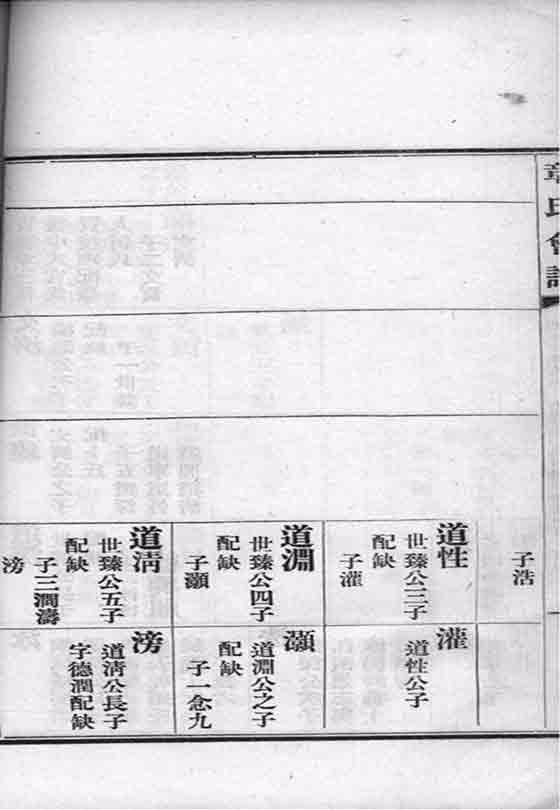 章氏會譜
子浩
道性
世臻公三子
配缺
子灌
道淵
世臻公四子
配缺
子灝
道清
世臻公五子
配缺
子三潤濤
滂
灌
道性公子
灝
道淵公之子
配缺
子一念九
滂
道清公長子
字德潤配缺